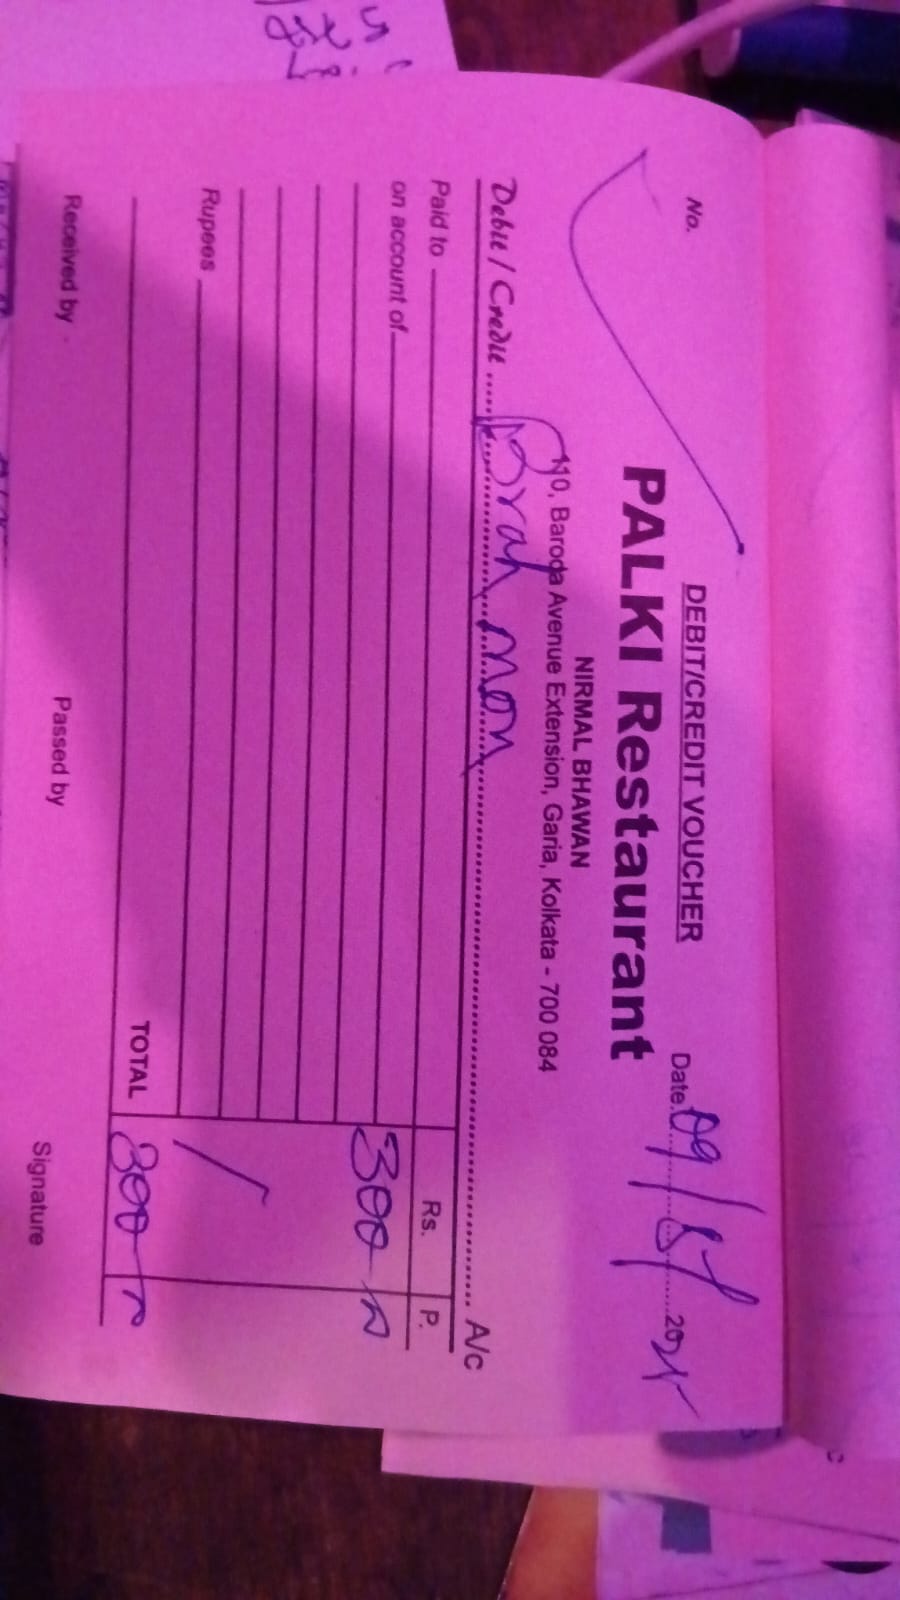 DEBIT/CREDIT VOUCHER
No.
Date. 09/
PALKI Restaurant
NIRMAL BHAWAN
110, Baroda Avenue Extension, Garia, Kolkata - 700 084
Debit / Credit ........ Brah mon ........ A/c
Paid to
Rs. P.
on account of
300
Rupees
TOTAL 300
Received by Passed by Signature